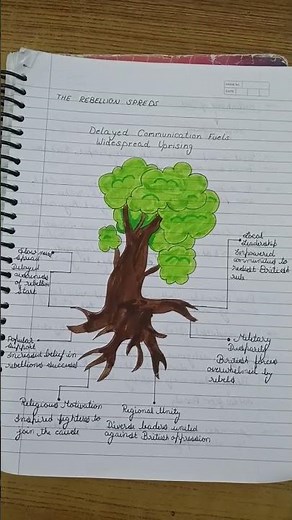 THE REBELLION SPREDS
Delayed Communication Fuels
Widespread Uprising
Slow news
spread
Delayed
awareness
of rebellion
start
Local
leadership
Empowered
communities to
resist British
rule
Popular
Support
Increased belief in
rebellions success
Military
Disparity
British forces
overwhelmed by
rebels
Religious Motivation
Inspired fighters to
join the cause
Regional Unity
Diverse leaders united
against British oppression